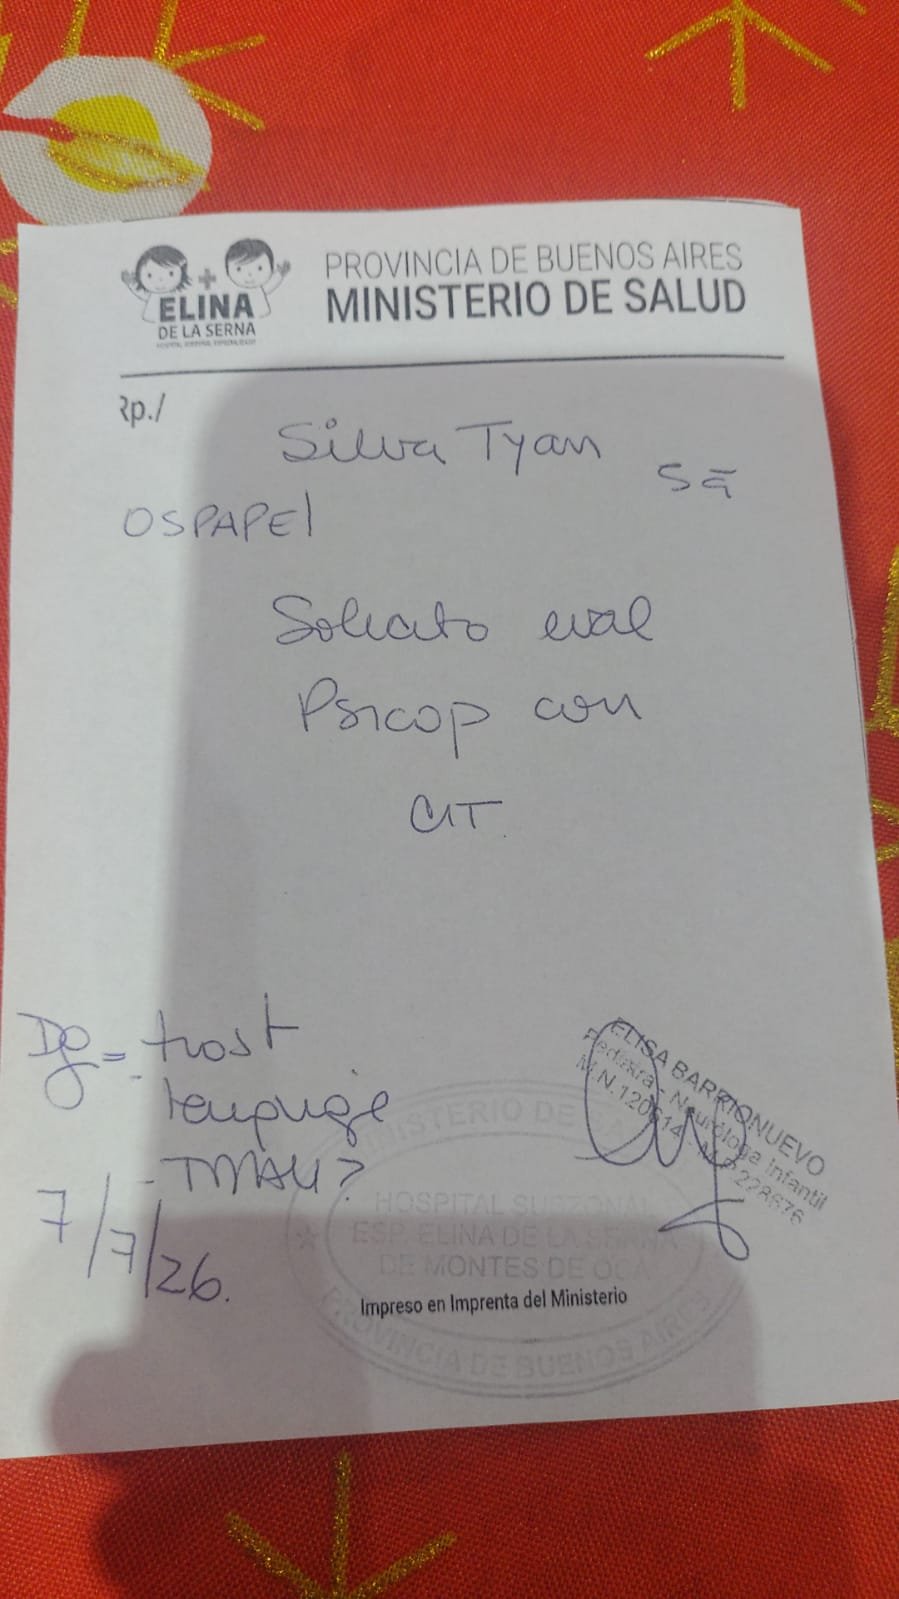 ELINA
DE LA SERNA
PROVINCIA DE BUENOS AIRES
MINISTERIO DE SALUD
Rp./
Silva Tyan
5 a
OSPAPEl
Solicito eval
Psicop con
CIT.
Dg = trast
lenguaje
- TMAU?
7/7/26.
ELISA BARRIONUEVO
Pediatra - Neuróloga Infantil
M.N.120614 - M.P.228676
MINISTERIO DE SALUD
HOSPITAL SUBZONAL
ESP. ELINA DE LA SERNA
DE MONTES DE OCA
PROVINCIA DE BUENOS AIRES
Impreso en Imprenta del Ministerio